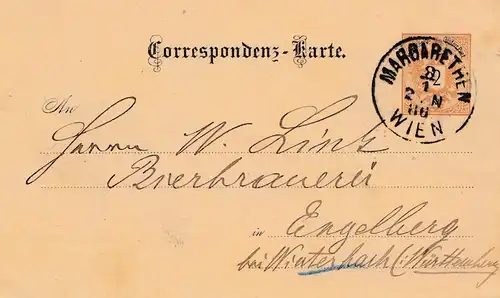 Correspondenz-Karte.
MARGARETHEN
WIEN
2 N
86
An
Herrn W. Link
Bierbrauerei
in Engelberg
bei Winterbach (Württemberg